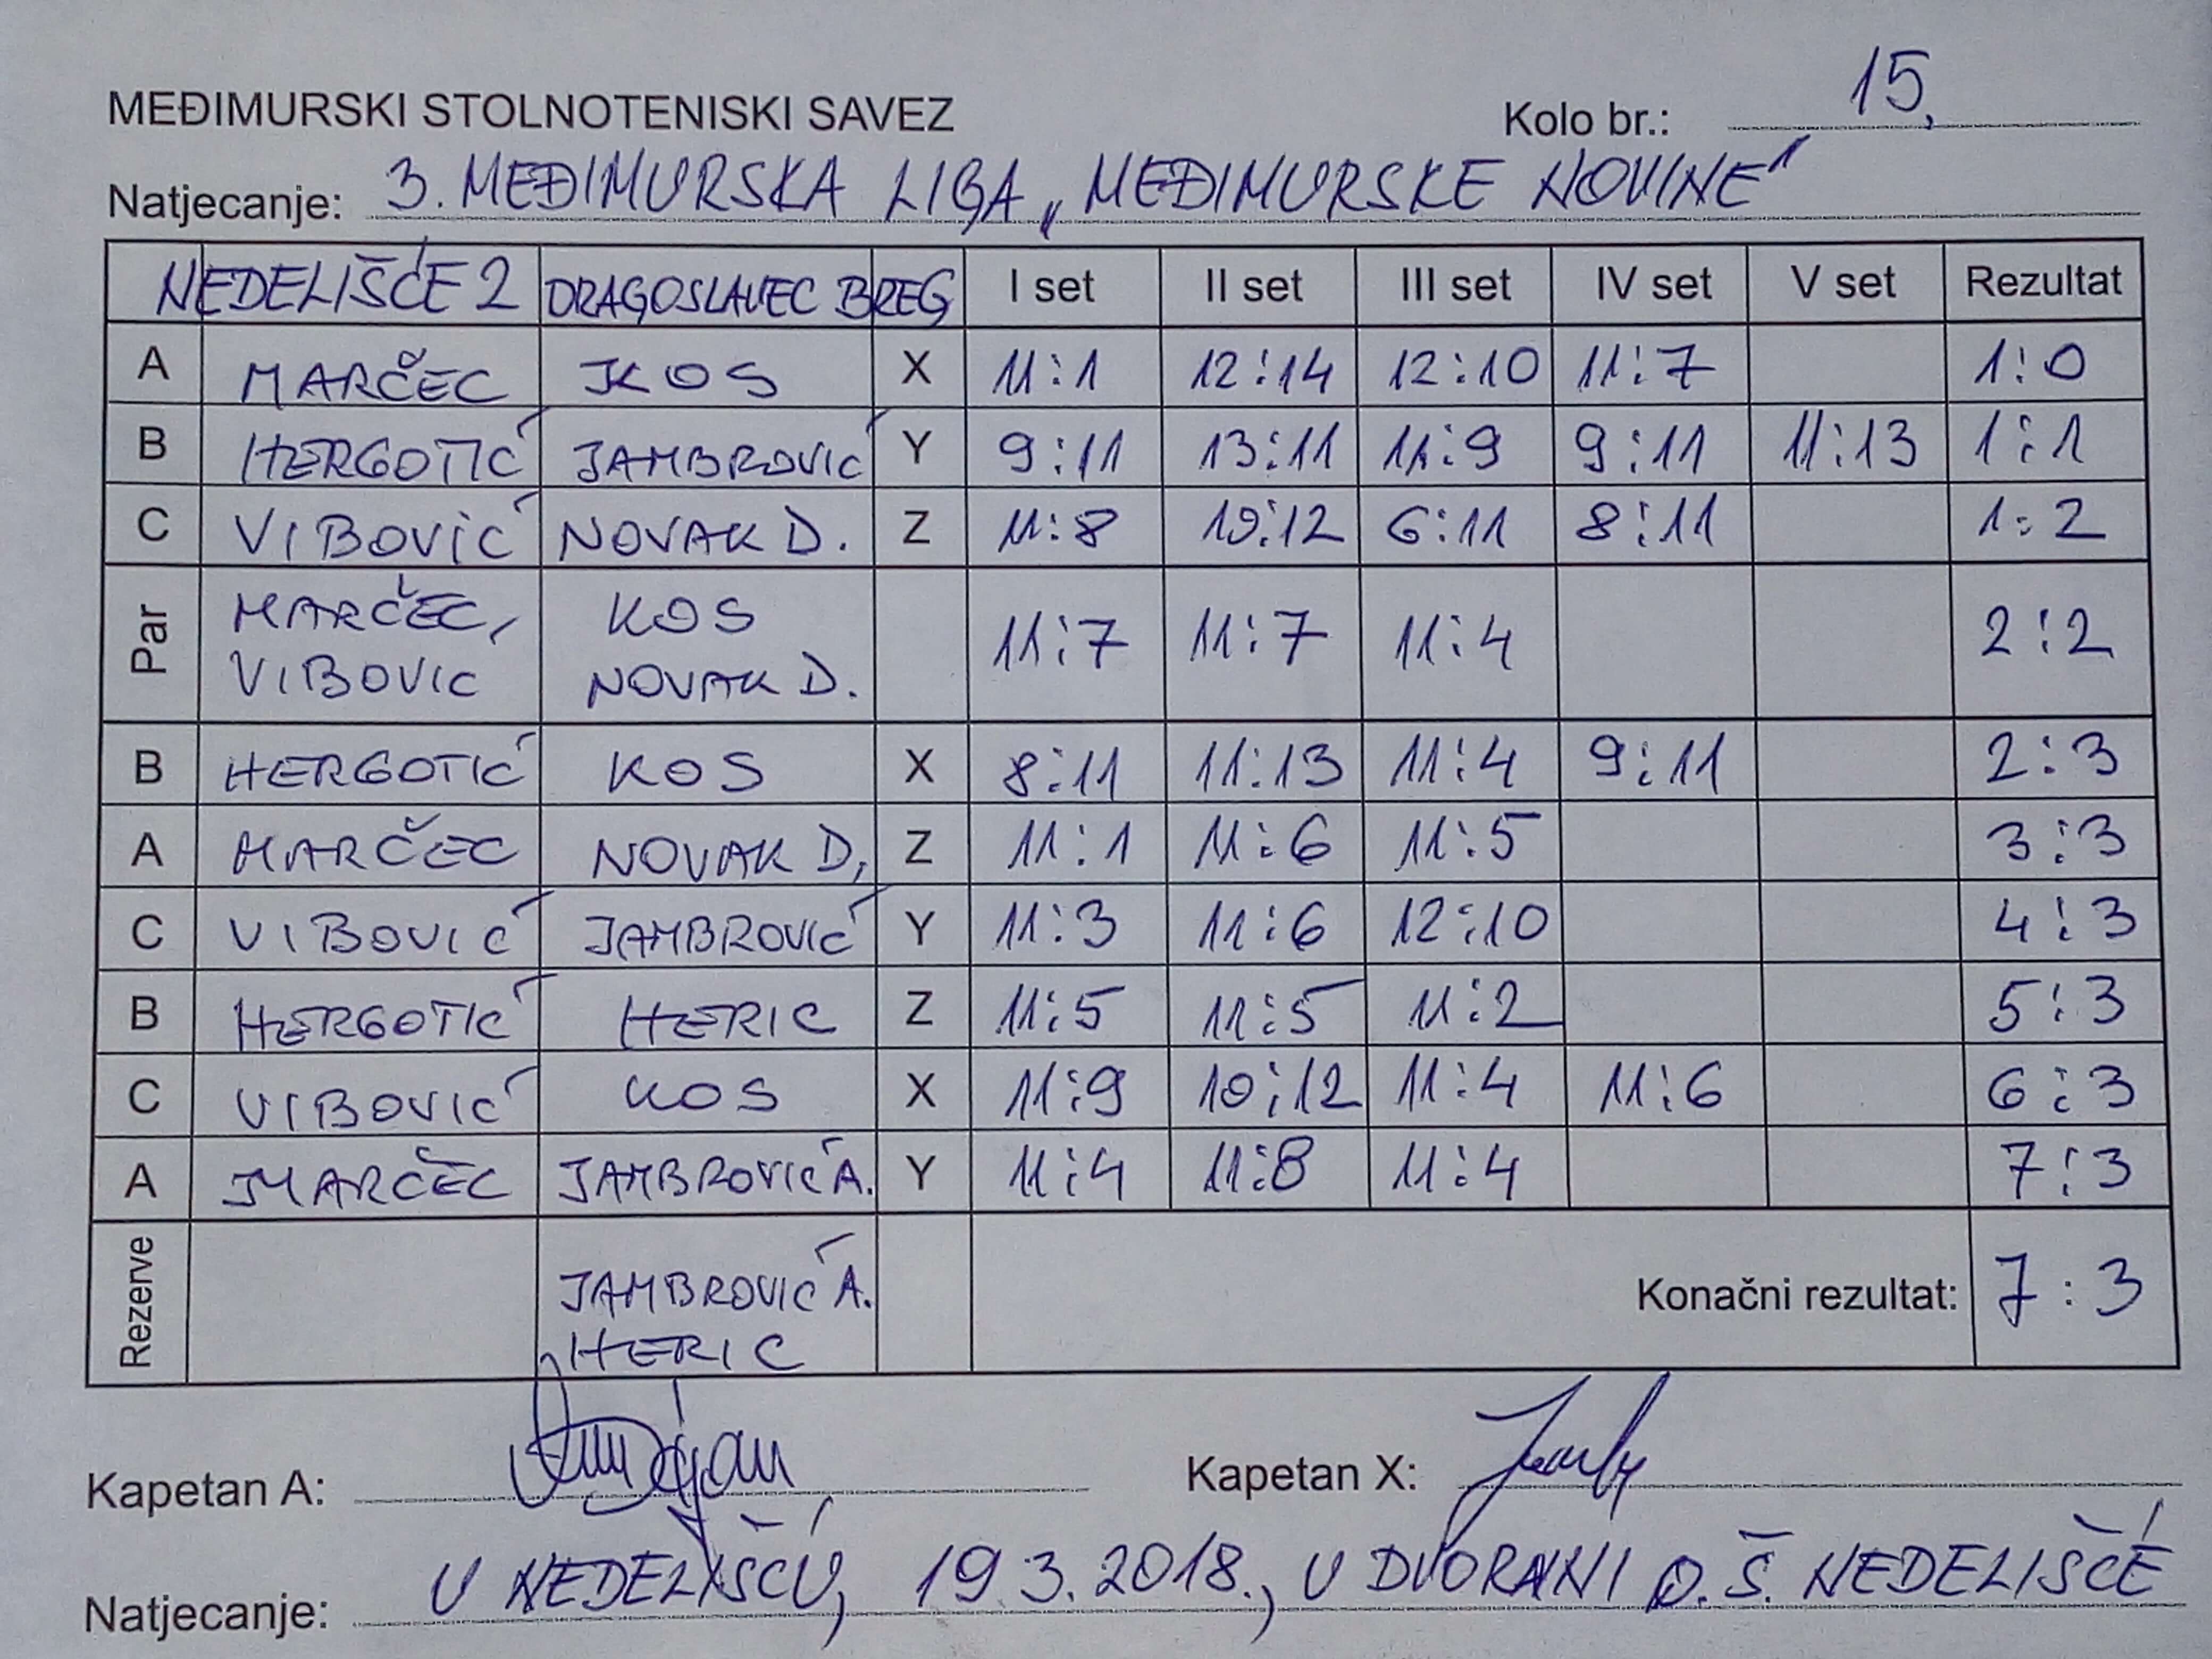 MEĐIMURSKI STOLNOTENISKI SAVEZ Kolo br.: 15.
Natjecanje: 3. MEĐIMURSKA LIGA „MEĐIMURSKE NOVINE"
NEDELIŠĆE 2 DRAGOSLAVEC BREG I set II set III set IV set V set Rezultat
A MARČEC KOS X 11:1 12:14 12:10 11:7 1:0
B HERGOTIĆ JAMBROVIĆ Y 9:11 13:11 11:9 9:11 11:13 1:1
C VIBOVIĆ NOVAK D. Z 11:8 10:12 6:11 8:11 1:2
Par MARČEC, KOS 11:7 11:7 11:4 2:2
VIBOVIC NOVAK D.
B HERGOTIĆ KOS X 8:11 11:13 11:4 9:11 2:3
A MARČEC NOVAK D, Z 11:1 11:6 11:5 3:3
C VIBOVIĆ JAMBROVIĆ Y 11:3 11:6 12:10 4:3
B HERGOTIĆ HERIC Z 11:5 11:5 11:2 5:3
C VIBOVIĆ KOS X 11:9 10:12 11:4 11:6 6:3
A MARČEC JAMBROVIĆ A. Y 11:4 11:8 11:4 7:3
Rezerve JAMBROVIĆ A. Konačni rezultat: 7:3
HERIC
Kapetan A: Kapetan X:
Natjecanje: U NEDELIŠĆU, 19.3.2018., U DVORANI O.Š. NEDELIŠĆE